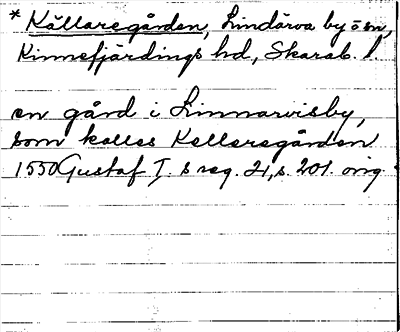 * Källaregården, Lindärva by o sn,
Kinnefjärdings hd, Skarab. l.
en gård i Linnarvisby,
som kalles Kellaregården
1550 Gustaf I. s reg. 21, s. 201. orig.